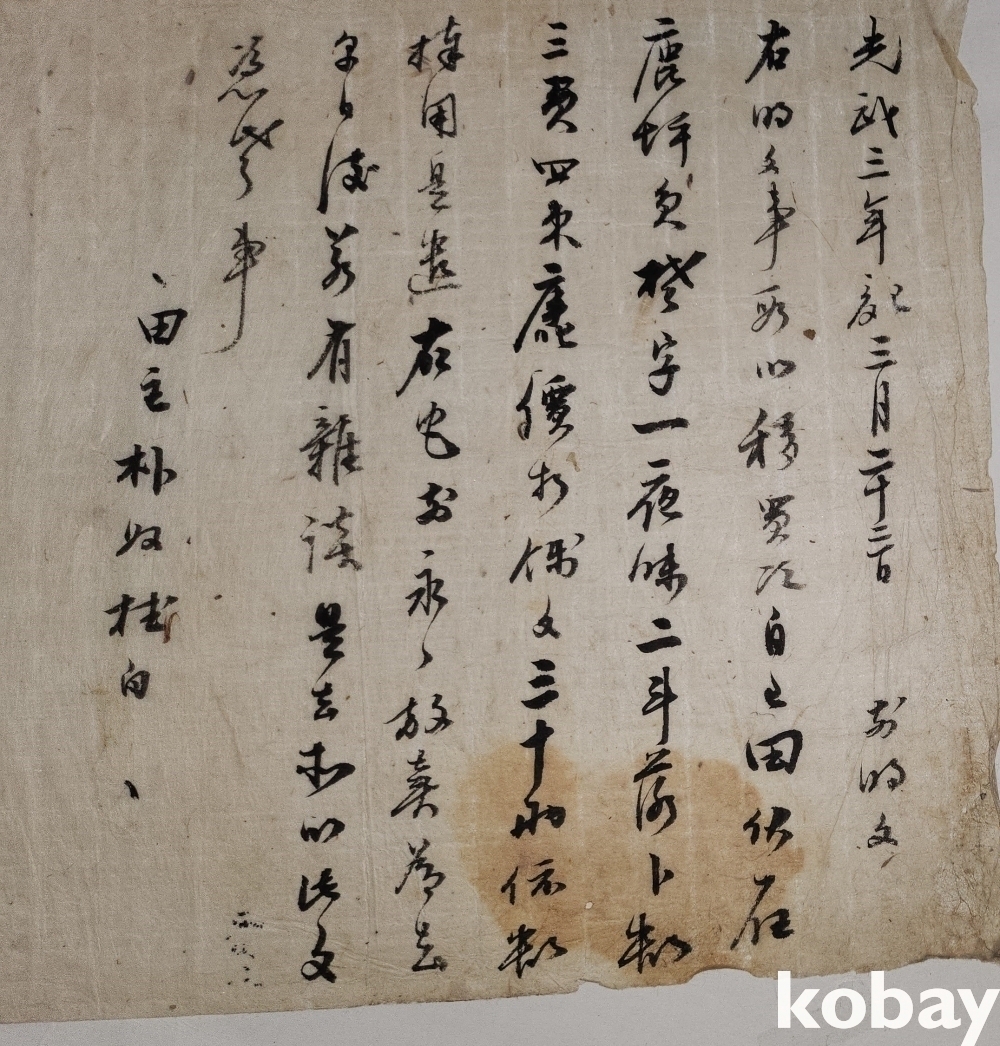 光武三年 三月二十三日 前明文
右明文事段以移買次自己田伏在
鹿坪員 字一夜味二斗落卜數
三負四束 價折 文三十兩依數
捧用是遣右宅前永永放賣爲去
乎日後若有雜談是去 以此文
憑 事
田主朴奴 白
kobay